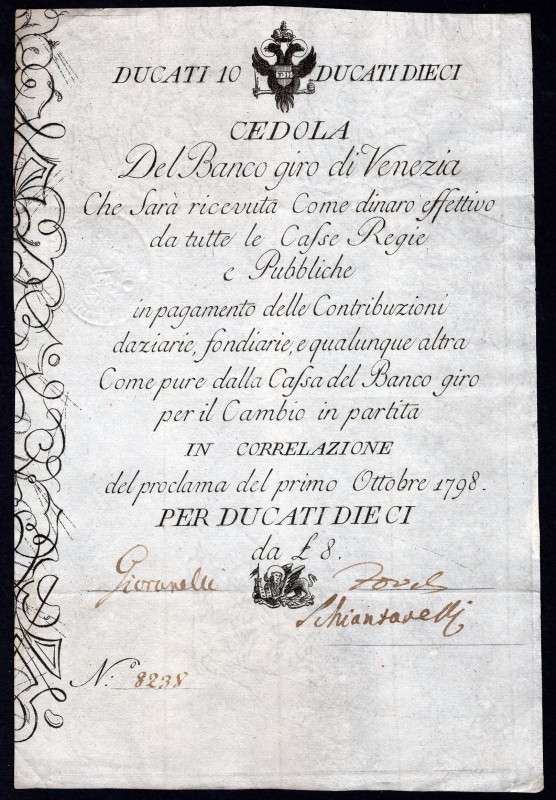 DUCATI 10 DUCATI DIECI
CEDOLA
Del Banco giro di Venezia
Che Sarà ricevuta Come dinaro effettivo
da tutte le Caſse Regie
e Pubbliche
in pagamento delle Contribuzioni
daziarie, fondiarie, e qualunque altra
Come pure dalla Caſsa del Banco giro
per il Cambio in partita
IN CORRELAZIONE
del proclama del primo Ottobre 1798.
PER DUCATI DIECI
da £ 8.
Giovanelli
N.º 8238